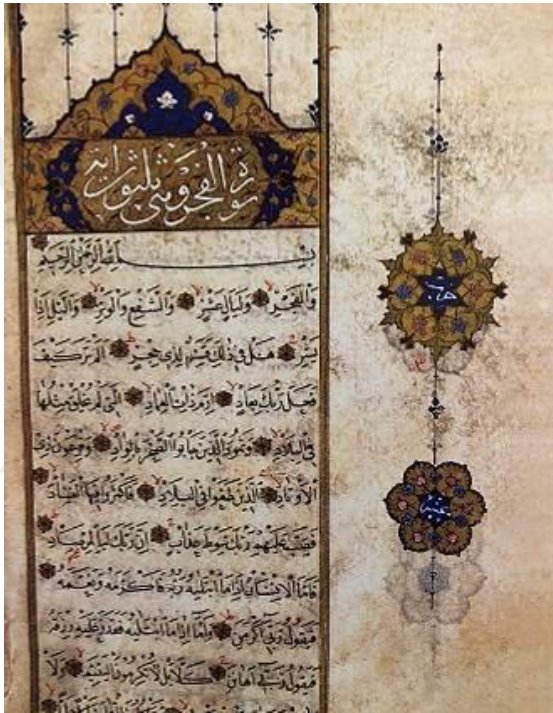 سورة الفجر وهي ثلثون اية
بسم الله الرحمن الرحيم
وَالْفَجْرِ وَلَيَالٍ عَشْرٍ وَالشَّفْعِ وَالْوَتْرِ وَالَّيْلِ إِذَا
يَسْرِ هَلْ فِي ذَٰلِكَ قَسَمٌ لِذِي حِجْرٍ أَلَمْ تَرَ كَيْفَ
فَعَلَ رَبُّكَ بِعَادٍ إِرَمَ ذَاتِ الْعِمَادِ الَّتِي لَمْ يُخْلَقْ مِثْلُهَا
فِي الْبِلَادِ وَثَمُودَ الَّذِينَ جَابُوا الصَّخْرَ بِالْوَادِ وَفِرْعَوْنَ ذِي
الْأَوْتَادِ الَّذِينَ طَغَوْا فِي الْبِلَادِ فَأَكْثَرُوا فِيهَا الْفَسَادَ
فَصَبَّ عَلَيْهِمْ رَبُّكَ سَوْطَ عَذَابٍ إِنَّ رَبَّكَ لَبِالْمِرْصَادِ
فَأَمَّا الْإِنْسَانُ إِذَا مَا ابْتَلٰيهُ رَبُّهُ فَأَكْرَمَهُ وَنَعَّمَهُ
فَيَقُولُ رَبِّي أَكْرَمَنِ وَأَمَّا إِذَا مَا ابْتَلٰيهُ فَقَدَرَ عَلَيْهِ رِزْقَهُ
فَيَقُولُ رَبِّي أَهَانَنِ كَلَّا بَلْ لَا تُكْرِمُونَ الْيَتِيمَ وَلَا
حزب
عشر